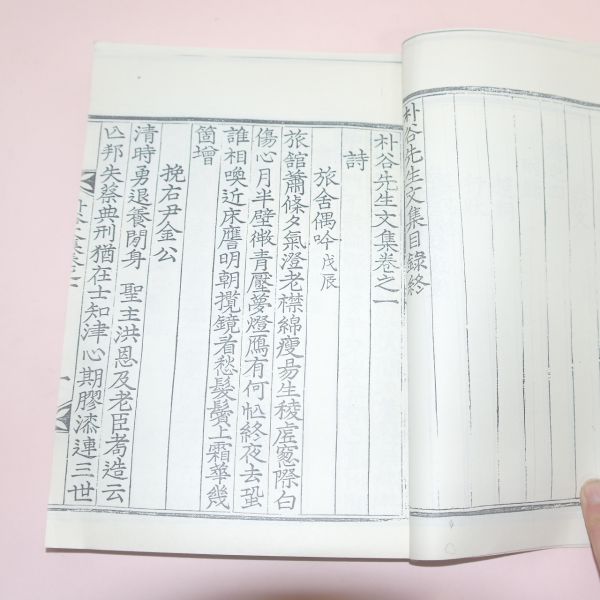 朴谷先生文集目錄終
朴谷先生文集卷之一
詩
旅舍偶吟 戊辰
旅舘蕭條夕氣澄老襟綿瘦易生稜虛窓際白
傷心月半壁微青壓夢燈鴈有何忙終夜去蛩
誰相喚近床譍明朝攬鏡看愁髮鬢上霜華幾
箇增
挽右尹金公
清時勇退養閒身 聖主洪恩及老臣耈造云
亾邦失蔡典刑猶在士知津心期膠漆連三世
一